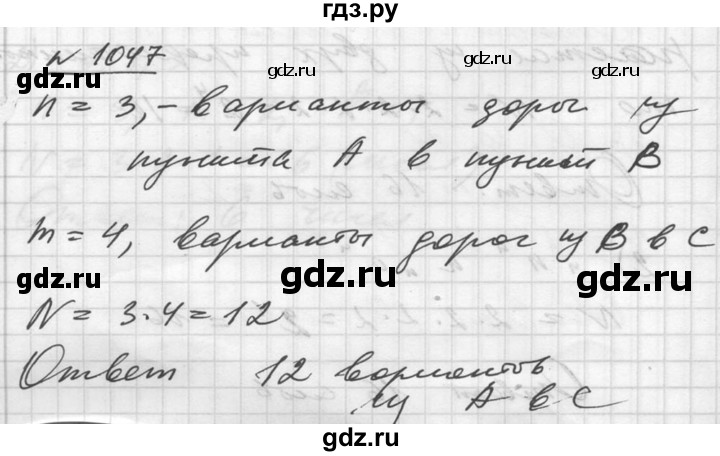 гдз.ру
№ 1047
gdz.ru gdz.ru gdz.ru
n = 3, - варианты дорог из
пункта А в пункт В
m = 4, варианты дорог из В в С
gdz.ru gdz.ru gdz.ru
N = 3·4 = 12
Ответ 12 вариантов
из А в С
gdz.ru gdz.ru gdz.ru
gdz.ru